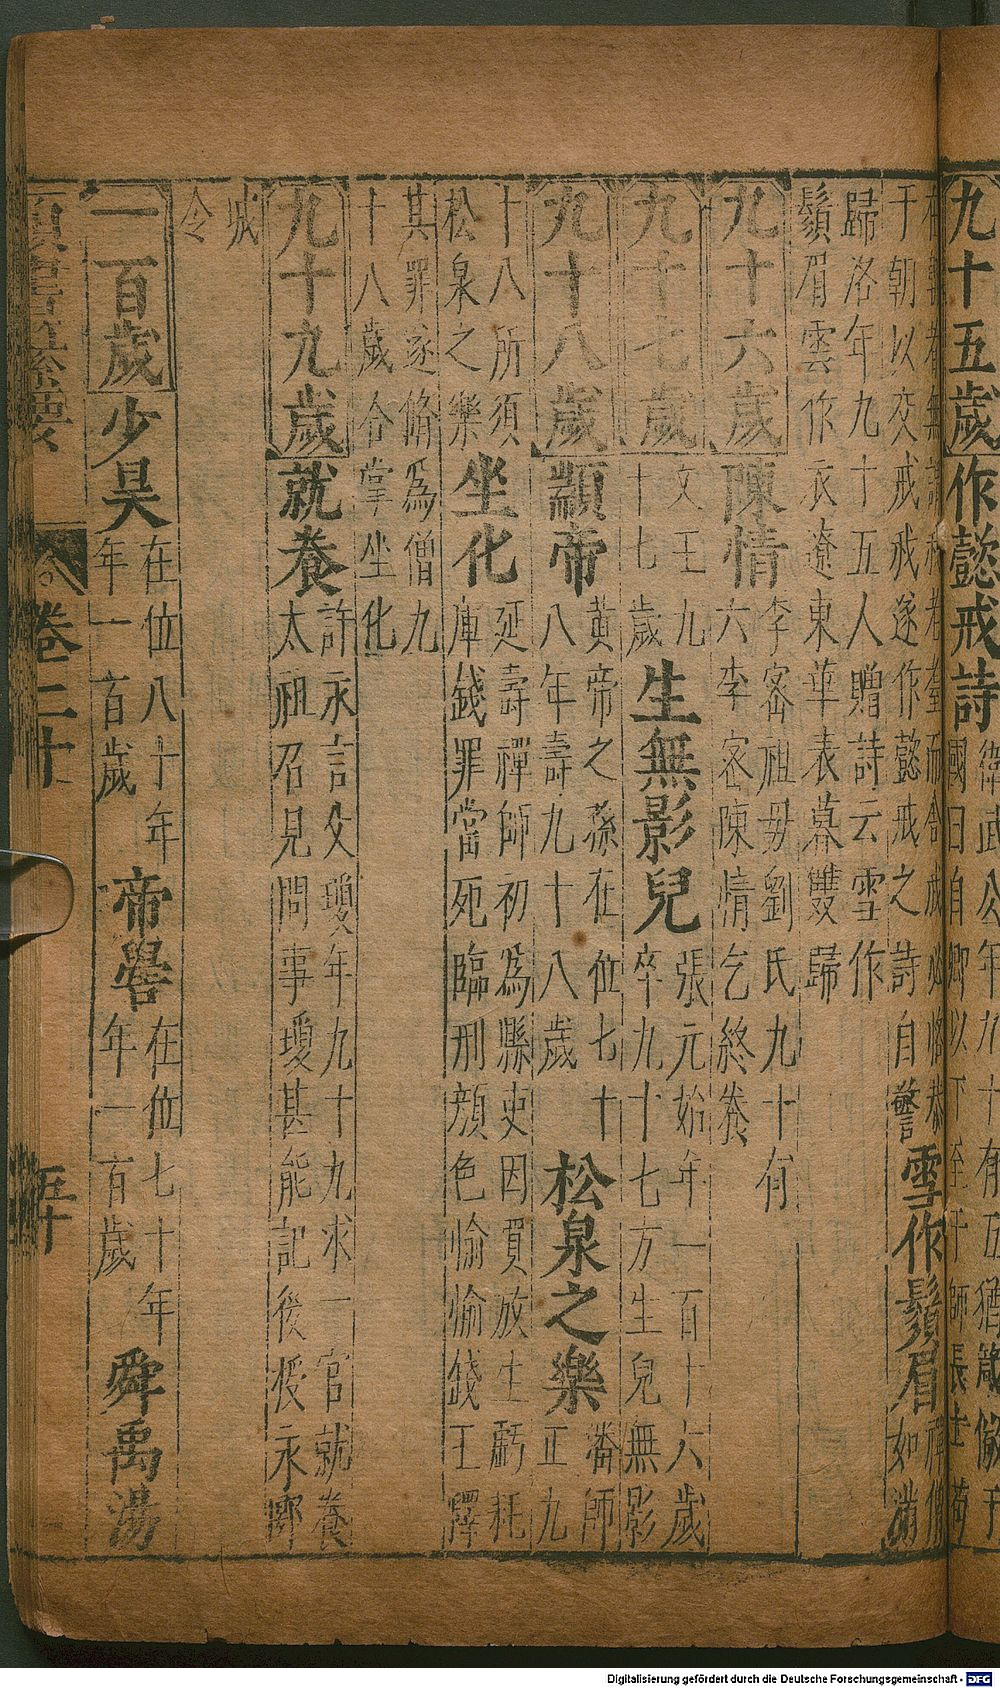 九十五歲作懿戒詩衛武公年九十有五猶箴儆于
國曰自卿以下至于師長士苟
在朝者無謂我老耄而舍我必恪恭
于朝以交戒我遂作懿戒之詩自警雪作鬚眉
如滿
歸洛年九十五人贈詩云雪作
鬚眉雲作衣遼東華表暮雙歸
九十六歲陳情李密祖母劉氏九十有
六李密陳情乞終養
九十七歲文王九
十七歲生無影兒張元始年一百十六歲
卒九十七方生兒無影
九十八歲顓帝黃帝之孫在位七十
八年壽九十八歲松泉之樂潘師
正九
十八所須
松泉之樂坐化延壽禪師初為縣吏因買放生虧耗
庫錢罪當死臨刑顏色愉愉錢王釋
其罪遂脩為僧九
十八歲合掌坐化
九十九歲就養許永言父瓊年九十九求一官就養
太祖召見問事瓊甚能記後授永鄢
城
令
一百歲少昊在位八十年
年一百歲帝嚳在位七十年
年一百歲舜禹湯
卷二十
五十
Digitalisierung gefördert durch die Deutsche Forschungsgemeinschaft - DFG